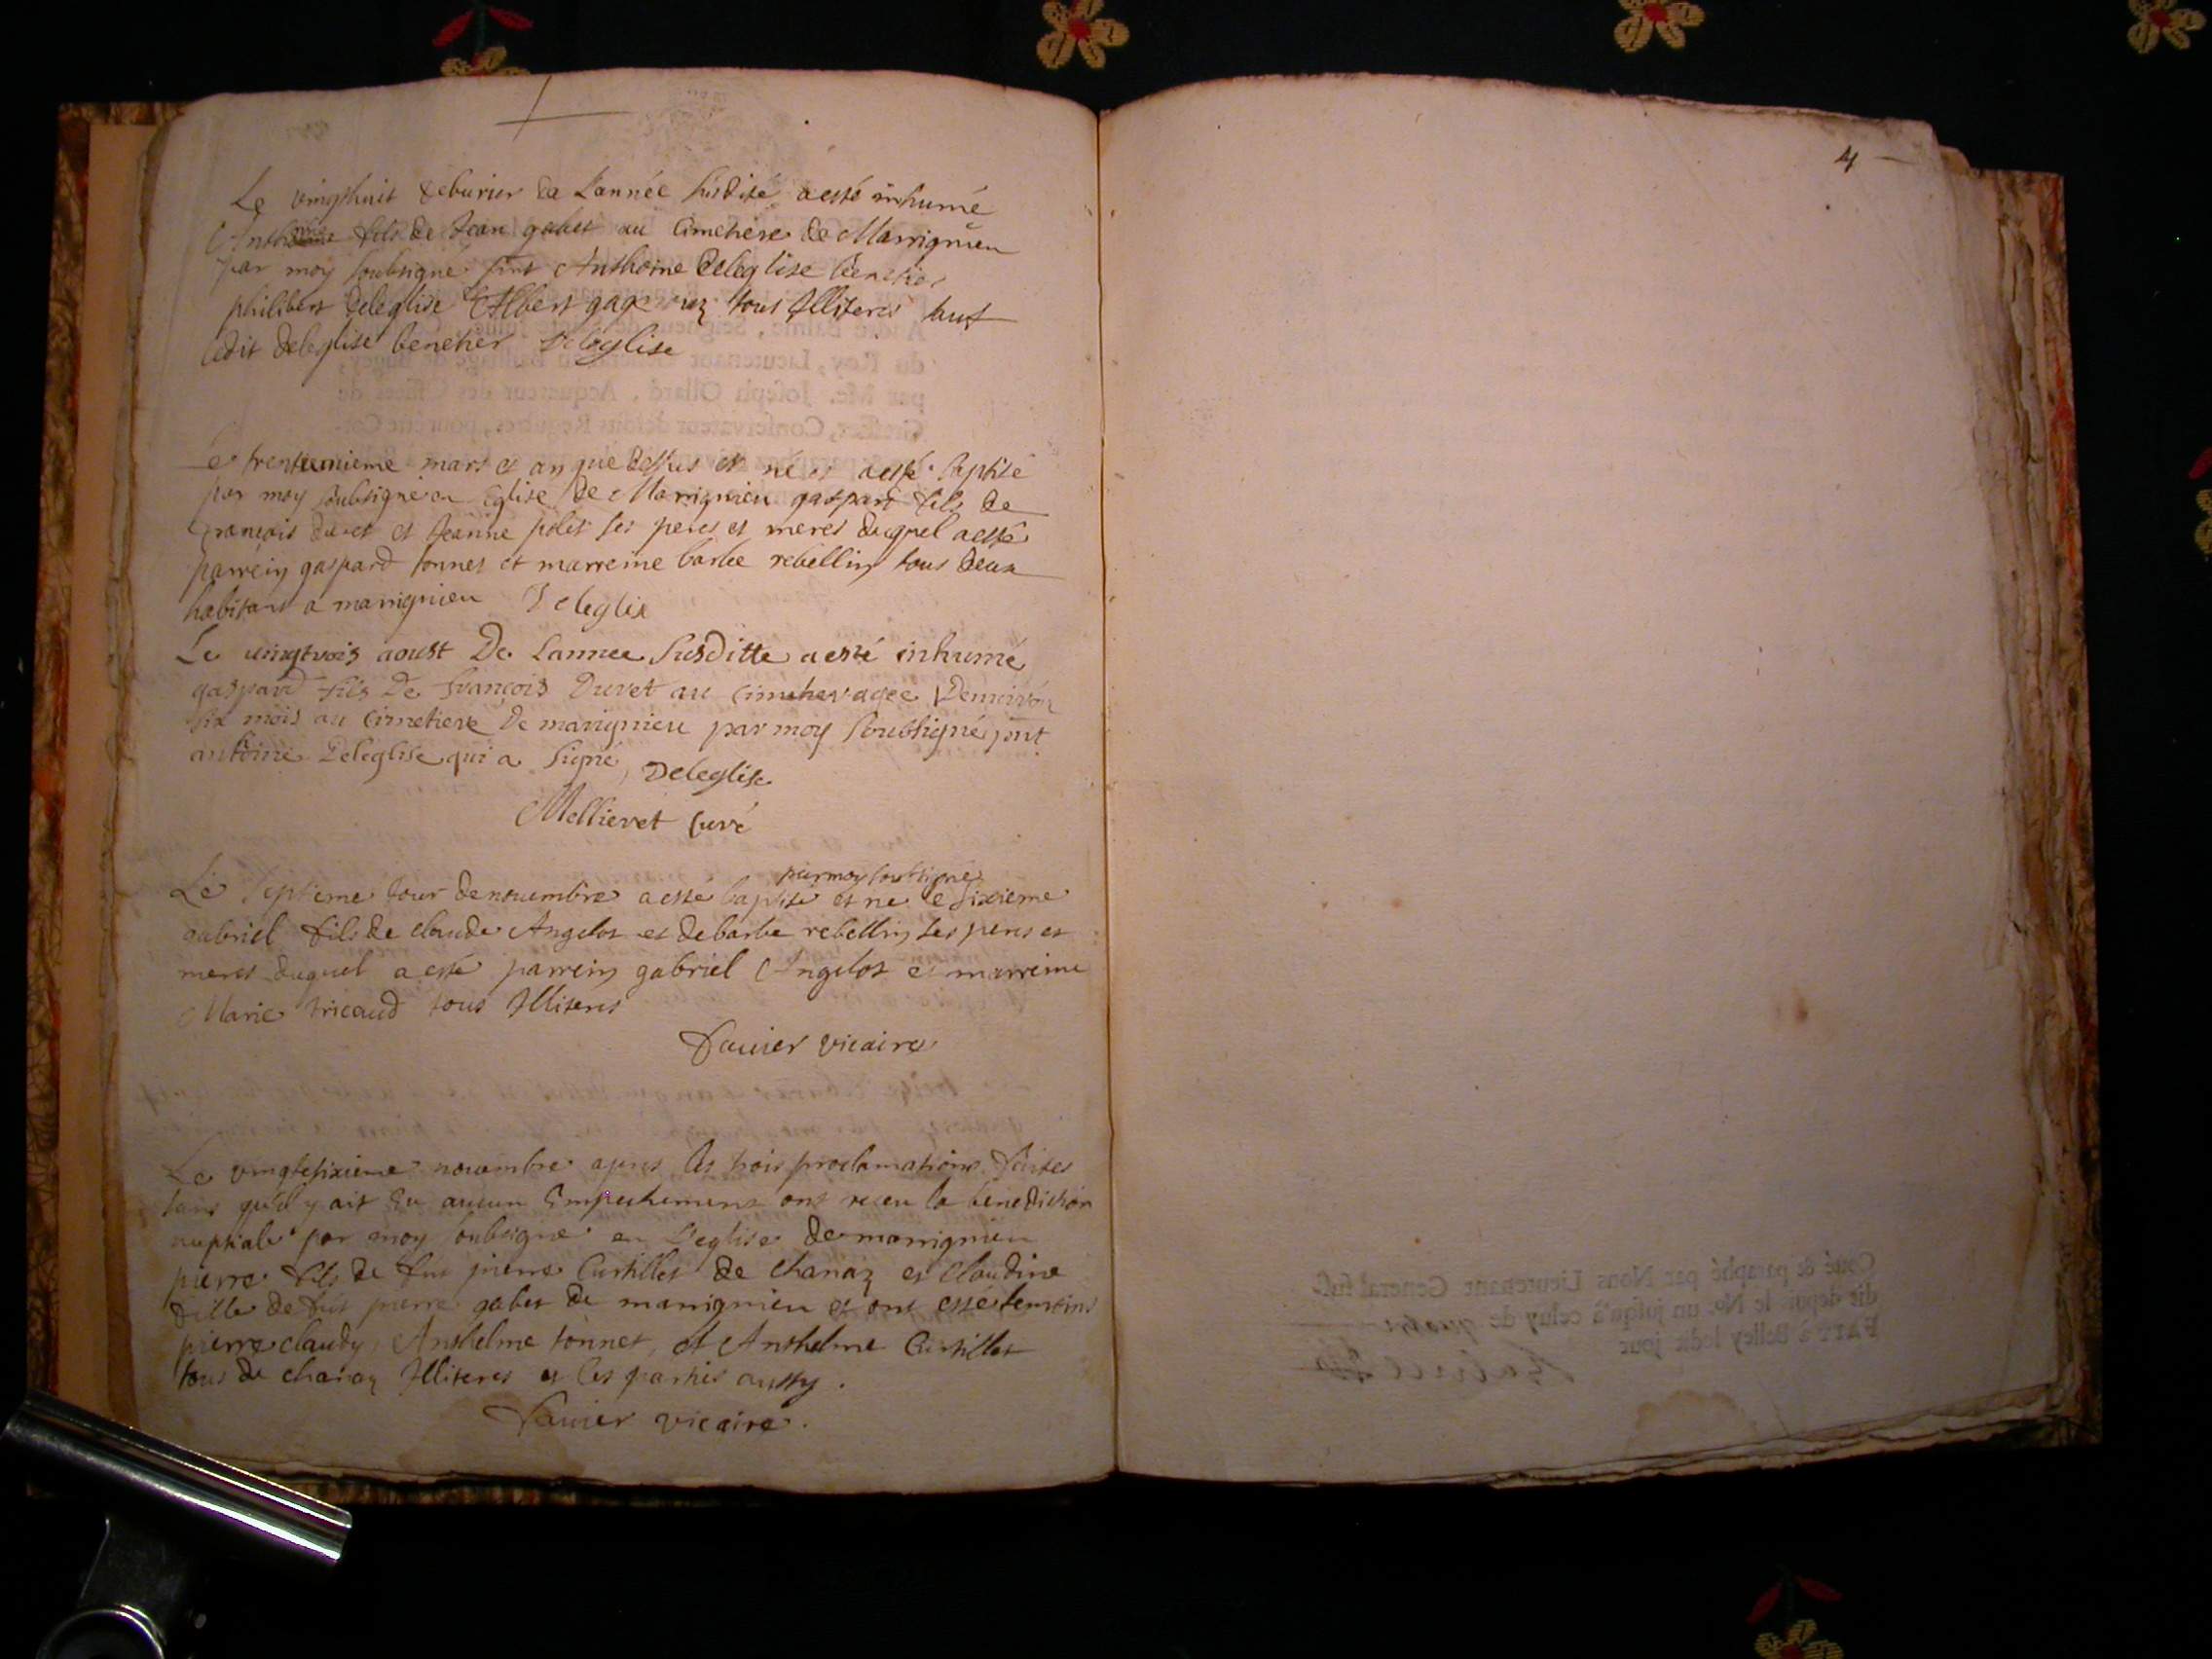 Le vingthuit feburier de L'année susdite a esté inhumé
fils de Jean gabet au Cimetiere de Marrignieu
par moy soubsigné Anthoine Deleglise
philibert deleglise et Albert tous Illiteres
ledit deleglise Deleglise
trentunieme mars et an que dessus est né et a esté baptisé
par moy soubsigné en Eglise de Marrignieu gaspard fils de
François duret et Jeanne polet ses peres et meres duquel a esté
parrein gaspard tonnet et marreine barbe rebellin tous deux
habitans a marrignieu Deleglise
Le vingtrois aoust De Lannee Susditte a esté inhumé
gaspard fils De François Duret au agee Denviron
six mois au Cimetiere De marignieu par moy soubsigné
antoine Deleglise qui a signé Deleglise
Mellieret Curé
par moy soubsigné
Le septieme Jour de nouembre a esté baptisé et né le sixieme
gabriel fils de claude Angelot et de barbe rebellin ses peres et
meres duquel a esté parrein gabriel Angelot et marreine
Marie tricaud tous Illiteres
Fauier vicaire
Le vingtsixieme nouembre apres les trois proclamations faites
sans qu'il y ait Eu aucun Empechement ont receu la benediction
nuptiale par moy soubsigné en L'eglise de marrignieu
pierre fils de feu pierre Curtillet de chanaz et Claudine
fille de feu pierre gabet de marrignieu et ont esté temoins
pierre claudy, Anthelme tonnet, et Anthelme Curtillet
tous de chanaz Illiteres et les parties aussy.
Fauier vicaire.
4
Cotté & paraphé par Nous Lieutenant General sus-
dit depuis le No. un jusqu'à celuy de quatre
FAIT à Belley ledit jour